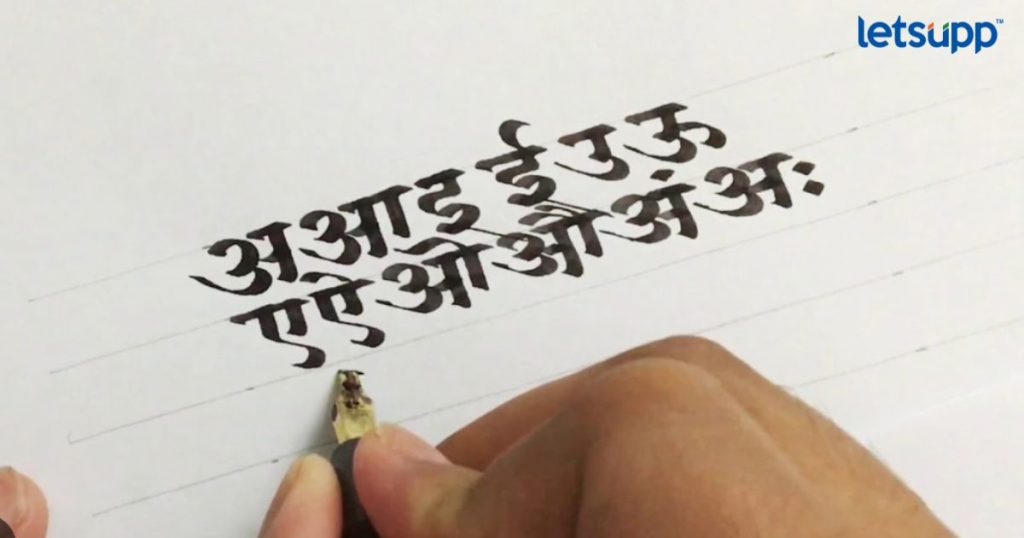 letsupp™
अ आ इ ई उ ऊ
ए ऐ ओ औ अं अः